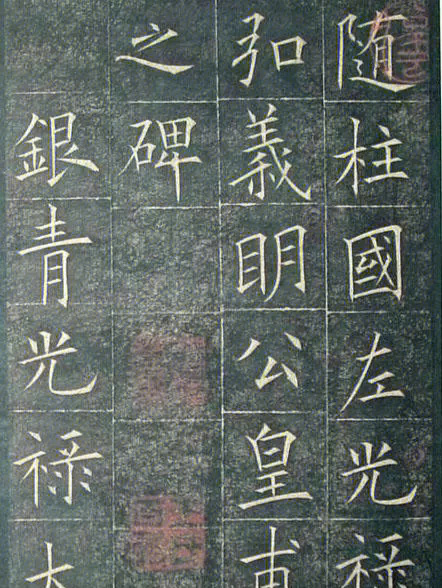 随柱國左光禄
弘義明公皇甫
之碑
銀青光禄大